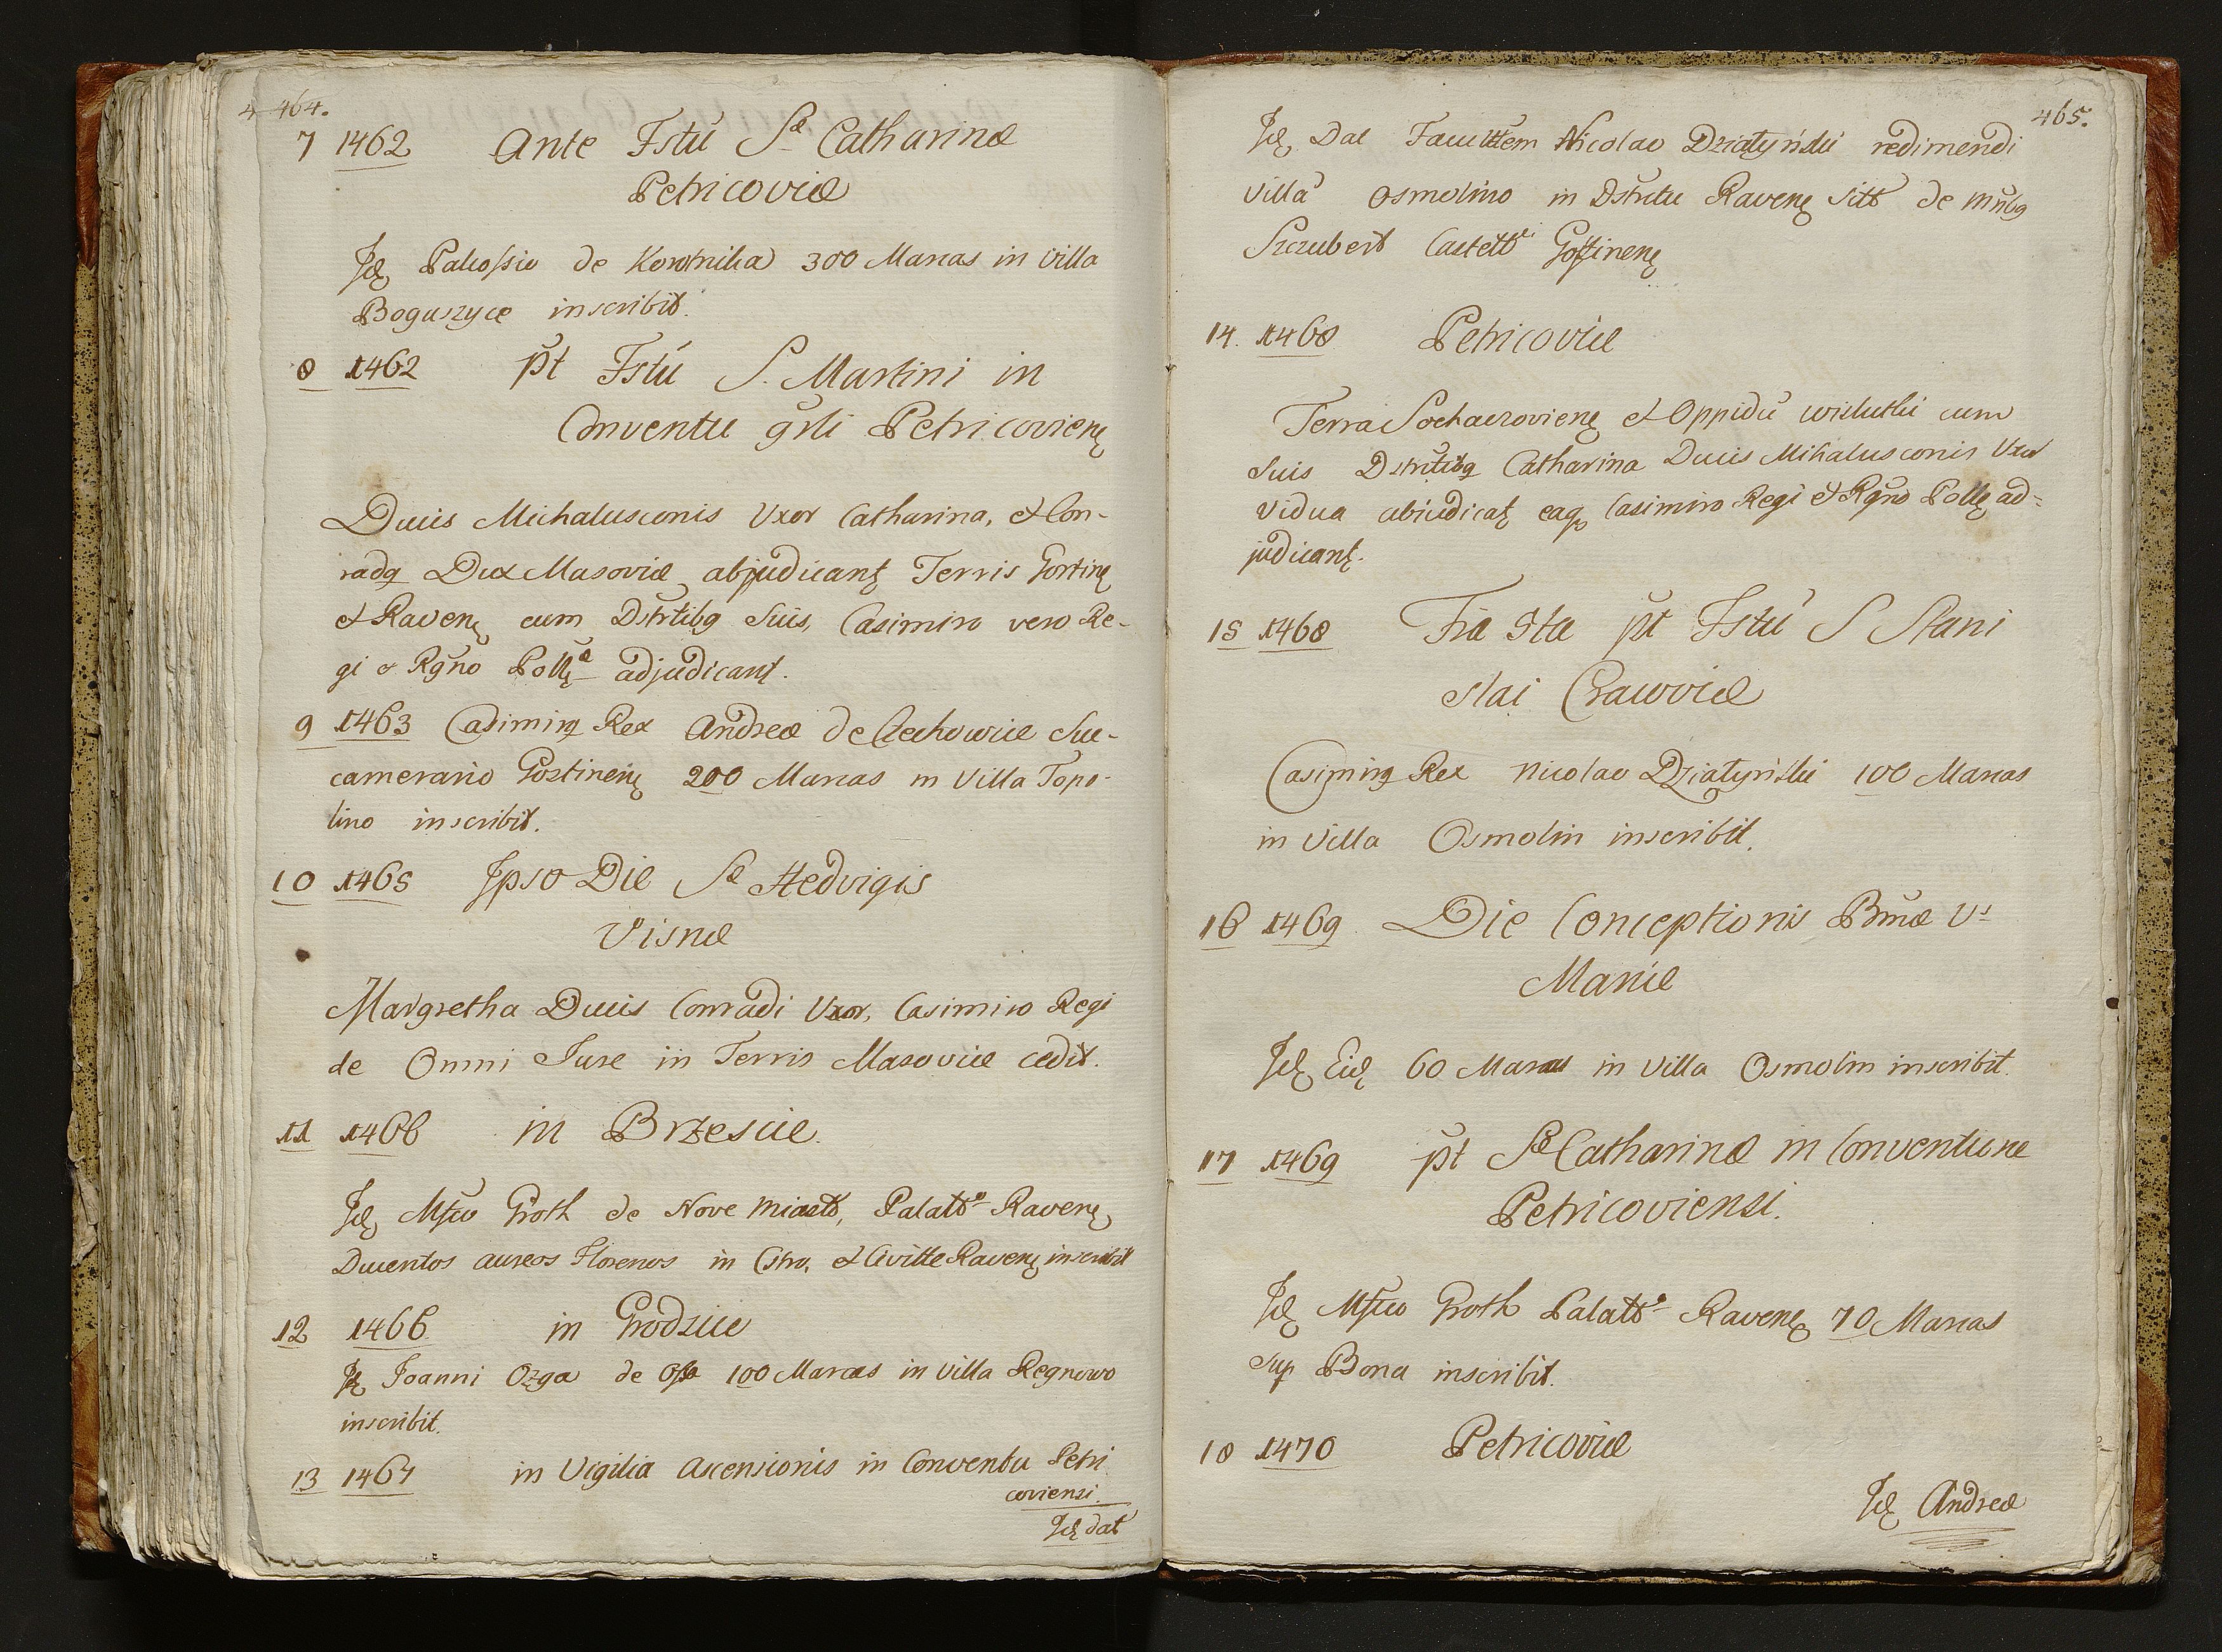 464.
7 1462 Ante Fstū Sæ Catharinæ
Petricoviæ
Jdę Palcossio de 300 Marcas in Villa
Boguszyce inscribit.
8 1462 p̃t Fstū S. Martini in
Conventu gr̃li Petricovienę
Ducis Michalusconis Uxor Catharina, et Con-
radq Dux Masoviæ abjudicantę Terris Gostinę
et Ravenę cum Dstrtibq Suis, Casimiro vero Re-
gi et Rgño Pollę adjudicantę.
9 1463 Casimirq Rex Andreæ de Czechowice Suc-
camerario Gostinenę 200 Marcas in Villa Topo-
lino inscribit.
10 1465 Jpso Die Sæ Hedvigis
Visnæ
Margretha Ducis Conradi Uxor, Casimiro Regi
de Omni Jure in Terris Masoviæ cedit.
11 1466 in Brzescie.
Jdę Groth de Nove miasto, Palatto Ravenę
Ducentos aureos Florenos in Cstro, et Civitte Ravenę inscribit
12 1466 in Grodzice
Jdę Joanni Ozga de Ossa 100 Marcas in Villa Regnowo
inscribit.
13 1467 in Vigilia Ascensionis in Conventu Petri
coviensi.
Jdę dat
465.
Jdę Dat Facultttem Nicolao Dziatyński redimendi
Villā Osmolino in Dstrictu Ravenę Sitt de mñbq
Szczubert Castetti Gostinenę
14. 1468 Petricoviæ
Terra Sochaczovienę et Oppidū wisckitki cum
Suis Dstrictibq Catharina Ducis Mihalusconis Uxor
Vidua abiudicatę eaq Casimiro Regi et Rgño Pollę ad=
judicantę.
15 1468 Fia 3tia p̃t Fstū S Stani
slai Cracoviæ
Casimirq Rex Nicolao Dziatyński 100 Marcas
in Villa Osmolin inscribit.
16 1469 Die Conceptionis Bmæ Vs
Mariæ
Jdę Eidę 60 Marcas in Villa Osmolin inscribit.
17 1469 p̃t Sæ Catharinæ in Conventione
Petricoviensi.
Jdę Groth Palatto Ravenę 70 Marcas
sup Bona inscribit.
18 1470 Petricoviæ
Jdę Andreæ